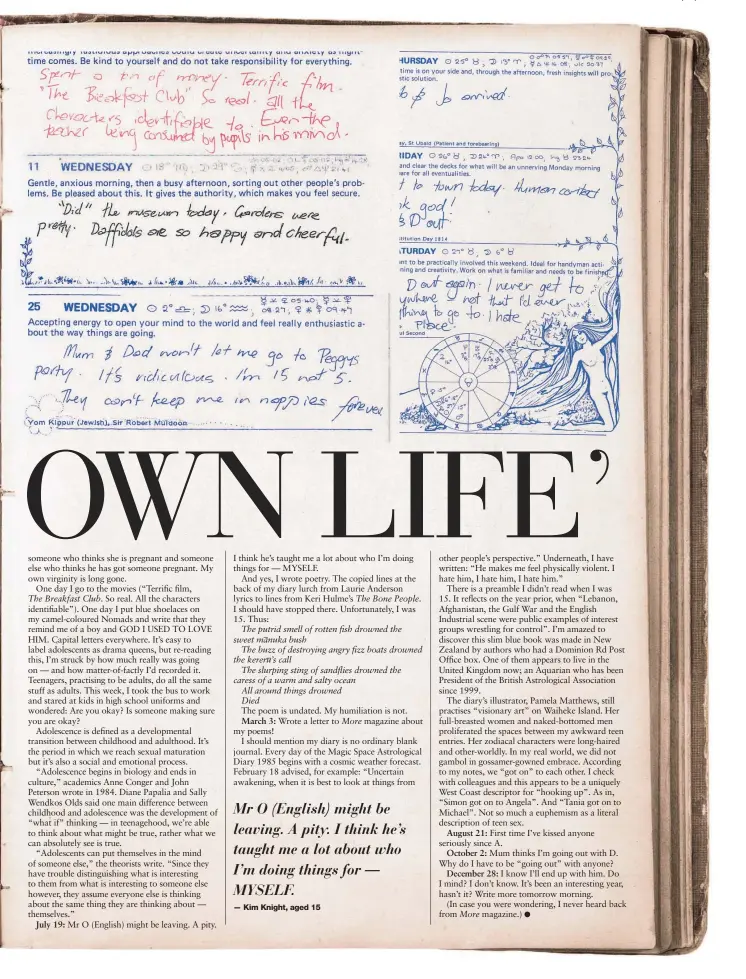 time comes. Be kind to yourself and do not take responsibility for everything.
Spent a ton of money. Terrific film.
"The Breakfast Club" So real. All the
characters identifiable to. Even the
teacher being consumed by pupils in his mind.
11 WEDNESDAY
Gentle, anxious morning, then a busy afternoon, sorting out other people's prob-
lems. Be pleased about this. It gives the authority, which makes you feel secure.
"Did" the museum today. Gardens were
pretty. Daffodils are so happy and cheerful.
25 WEDNESDAY
Accepting energy to open your mind to the world and feel really enthusiastic a-
bout the way things are going.
Mum & Dad won't let me go to Peggys
party. It's ridiculous. I'm 15 not 5.
They can't keep me in nappies forever
Yom Kippur (Jewish), Sir Robert Muldoon
HURSDAY
time is on your side and, through the afternoon, fresh insights will pro
stic solution.
arrived.
ay, St Ubald (Patient and forebearing)
IDAY
and clear the decks for what will be an unnerving Monday morning
are for all eventualities.
t to town today. Human contact
k god!
D out.
titution Day 1814
TURDAY
nt to be practically involved this weekend. Ideal for handyman acti-
ning and creativity. Work on what is familiar and needs to be finished
D out again. I never get to
ywhere not that I'd ever
thing to go to. I hate
place.
ul Second
OWN LIFE’
someone who thinks she is pregnant and someone
else who thinks he has got someone pregnant. My
own virginity is long gone.
One day I go to the movies (“Terrific film,
The Breakfast Club. So real. All the characters
identifiable”). One day I put blue shoelaces on
my camel-coloured Nomads and write that they
remind me of a boy and GOD I USED TO LOVE
HIM. Capital letters everywhere. It’s easy to
label adolescents as drama queens, but re-reading
this, I’m struck by how much really was going
on — and how matter-of-factly I’d recorded it.
Teenagers, practising to be adults, do all the same
stuff as adults. This week, I took the bus to work
and stared at kids in high school uniforms and
wondered: Are you okay? Is someone making sure
you are okay?
Adolescence is defined as a developmental
transition between childhood and adulthood. It’s
the period in which we reach sexual maturation
but it’s also a social and emotional process.
“Adolescence begins in biology and ends in
culture,” academics Anne Conger and John
Peterson wrote in 1984. Diane Papalia and Sally
Wendkos Olds said one main difference between
childhood and adolescence was the development of
“what if” thinking — in teenagehood, we’re able
to think about what might be true, rather what we
can absolutely see is true.
“Adolescents can put themselves in the mind
of someone else,” the theorists write. “Since they
have trouble distinguishing what is interesting
to them from what is interesting to someone else
however, they assume everyone else is thinking
about the same thing they are thinking about —
themselves.”
July 19: Mr O (English) might be leaving. A pity.
I think he’s taught me a lot about who I’m doing
things for — MYSELF.
And yes, I wrote poetry. The copied lines at the
back of my diary lurch from Laurie Anderson
lyrics to lines from Keri Hulme’s The Bone People.
I should have stopped there. Unfortunately, I was
15. Thus:
The putrid smell of rotten fish drowned the
sweet mānuka bush
The buzz of destroying angry fizz boats drowned
the kererū’s call
The slurping sting of sandflies drowned the
caress of a warm and salty ocean
All around things drowned
Died
The poem is undated. My humiliation is not.
March 3: Wrote a letter to More magazine about
my poems!
I should mention my diary is no ordinary blank
journal. Every day of the Magic Space Astrological
Diary 1985 begins with a cosmic weather forecast.
February 18 advised, for example: “Uncertain
awakening, when it is best to look at things from
Mr O (English) might be
leaving. A pity. I think he’s
taught me a lot about who
I’m doing things for —
MYSELF.
— Kim Knight, aged 15
other people’s perspective.” Underneath, I have
written: “He makes me feel physically violent. I
hate him, I hate him, I hate him.”
There is a preamble I didn’t read when I was
15. It reflects on the year prior, when “Lebanon,
Afghanistan, the Gulf War and the English
Industrial scene were public examples of interest
groups wrestling for control”. I’m amazed to
discover this slim blue book was made in New
Zealand by authors who had a Dominion Rd Post
Office box. One of them appears to live in the
United Kingdom now; an Aquarian who has been
President of the British Astrological Association
since 1999.
The diary’s illustrator, Pamela Matthews, still
practises “visionary art” on Waiheke Island. Her
full-breasted women and naked-bottomed men
proliferated the spaces between my awkward teen
entries. Her zodiacal characters were long-haired
and other-worldly. In my real world, we did not
gambol in gossamer-gowned embrace. According
to my notes, we “got on” to each other. I check
with colleagues and this appears to be a uniquely
West Coast descriptor for “hooking up”. As in,
“Simon got on to Angela”. And “Tania got on to
Michael”. Not so much a euphemism as a literal
description of teen sex.
August 21: First time I’ve kissed anyone
seriously since A.
October 2: Mum thinks I’m going out with D.
Why do I have to be “going out” with anyone?
December 28: I know I’ll end up with him. Do
I mind? I don’t know. It’s been an interesting year,
hasn’t it? Write more tomorrow morning.
(In case you were wondering, I never heard back
from More magazine.)